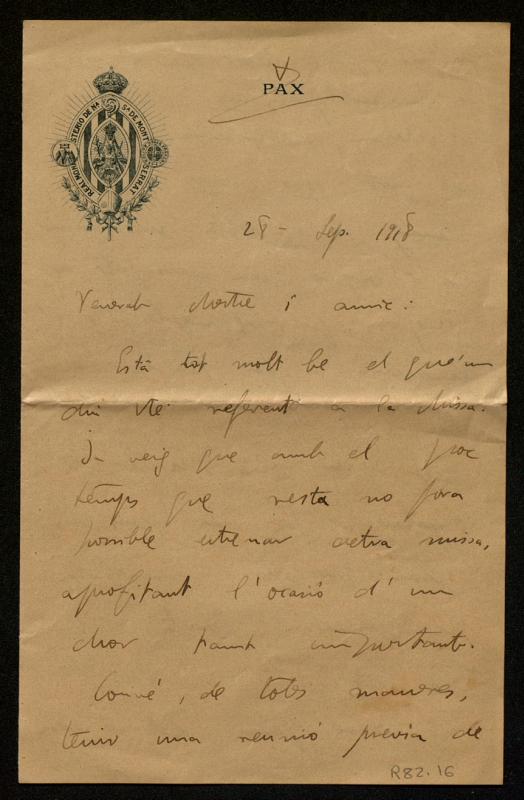 PAX
REAL MONASTERIO DE Nª Sª DE MONTSERRAT
28 - Sep. 1918
Venerat Mestre i amic:
Està tot molt be el que'm
diu Vtè referent a la Missa.
Ja veig que amb el poc
temps que resta no fora
possible estrenar vetra missa,
aprofitant l'ocasió d'un
chor tant important.
Convé, de totes maneres,
tenir una reunió previa de
R82.16